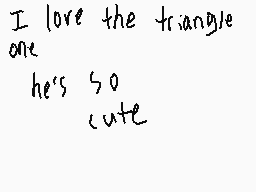 I love the triangle
one
he's so
cute